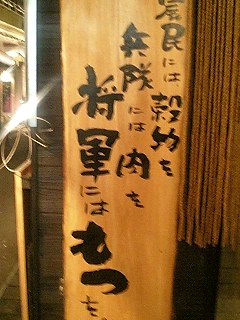 農民には穀物を
兵隊には肉を
将軍にはもつを。